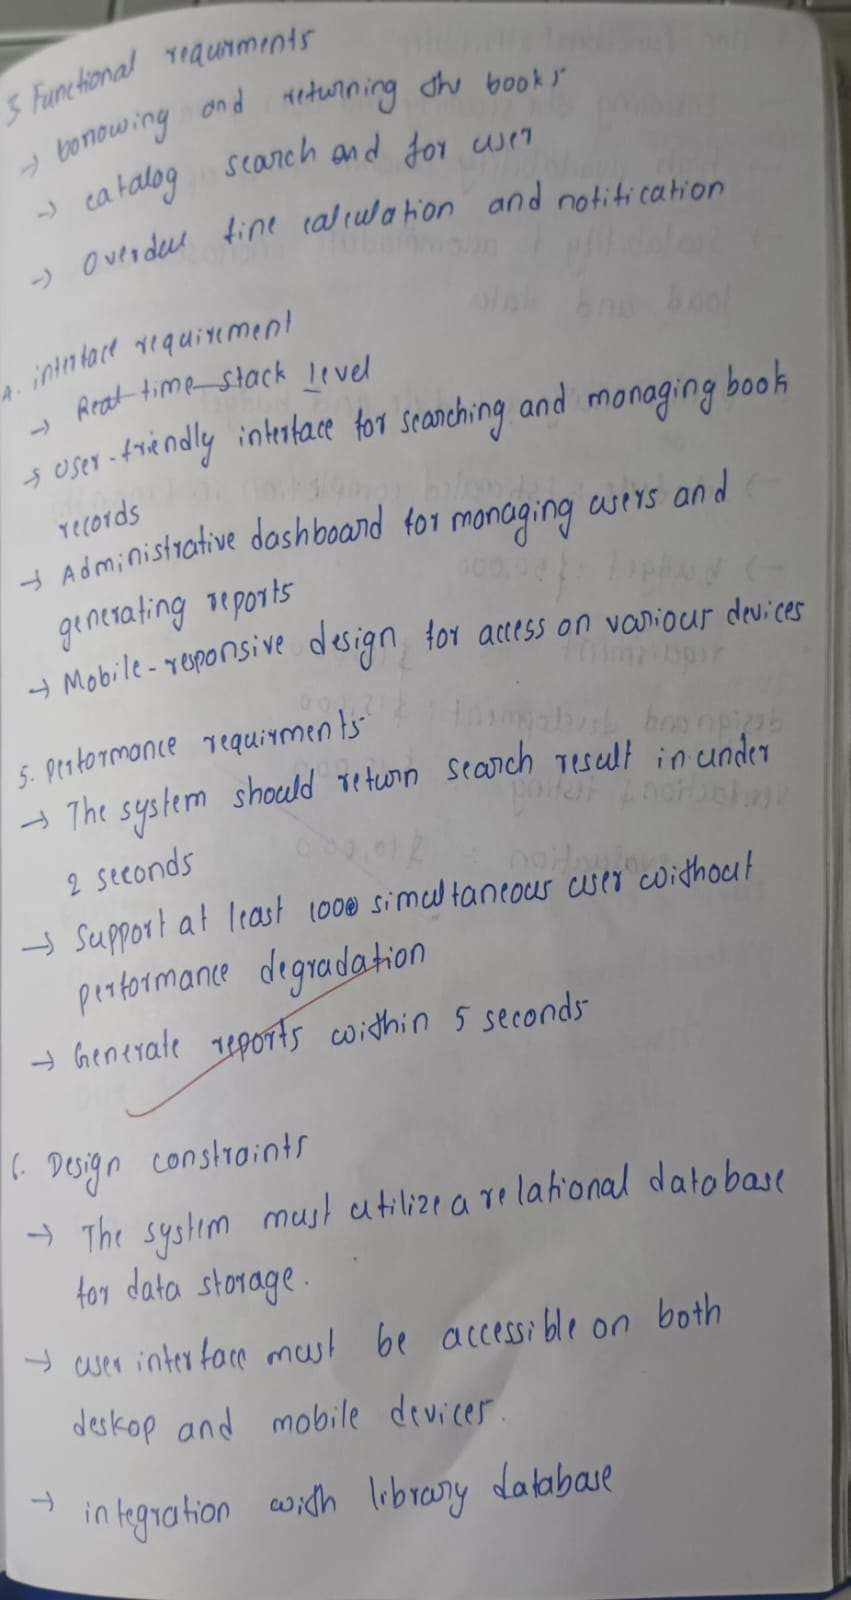 3 Functional requrments
→ borrowing and returning the books
→ catalog search and for user
→ Overdue fine calculation and notification
4. interface requirement
→ Real time stack level
→ User-friendly interface for searching and managing book
records
→ Administrative dashboard for managing users and
generating reports
→ Mobile-responsive design for access on various devices
5. performance requirments
→ The system should return search result in under
2 seconds
→ Support at least 1000 simultaneous user without
performance degradation
→ Generate reports within 5 seconds
6. Design constraints
→ The system must utilize a relational database
for data storage.
→ user interface must be accessible on both
deskop and mobile devices.
→ integration with library database